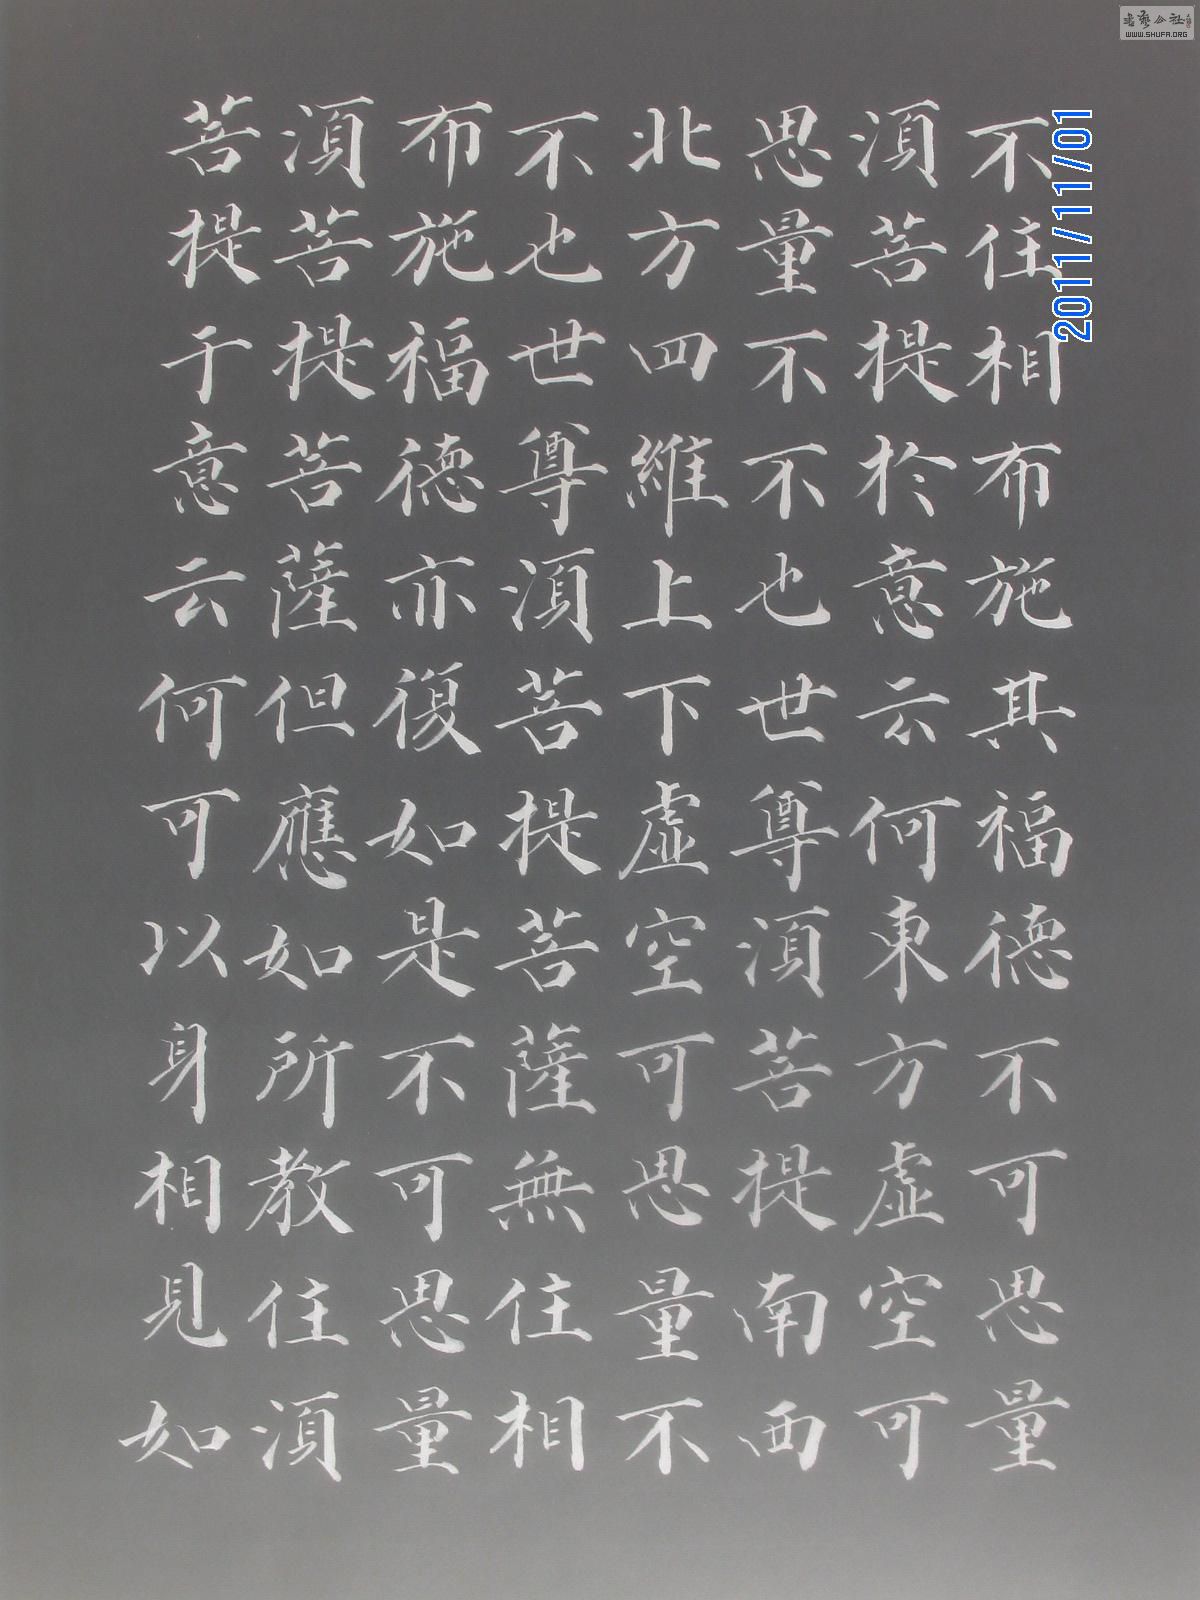 不住相布施其福德不可思量
須菩提於意云何東方虛空可
思量不不也世尊須菩提南西
北方四維上下虛空可思量不
不也世尊須菩提菩薩無住相
布施福德亦復如是不可思量
須菩提菩薩但應如所教住須
菩提于意云何可以身相見如
2011/11/01
書藝公社
WWW.SHUFA.ORG